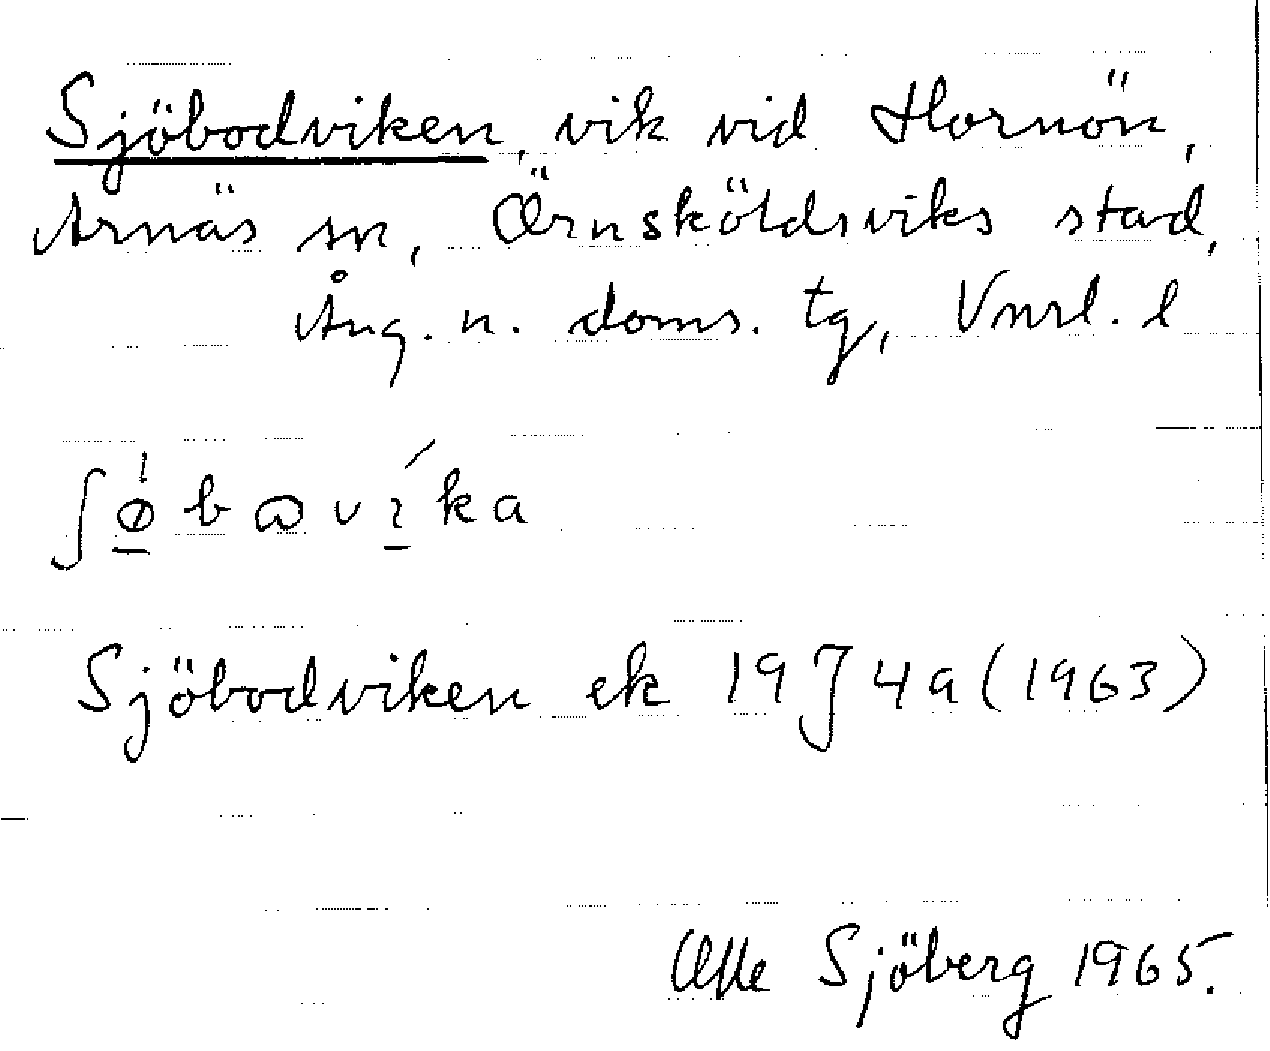 Sjöbodviken, vik vid Hornön,
Arnäs sn, Örnsköldsviks stad,
Ång. n. doms. tg, Vnrl. l
ʃøbɷvɩ́ka
Sjöbodviken ek 19J4a (1963)
Olle Sjöberg 1965.